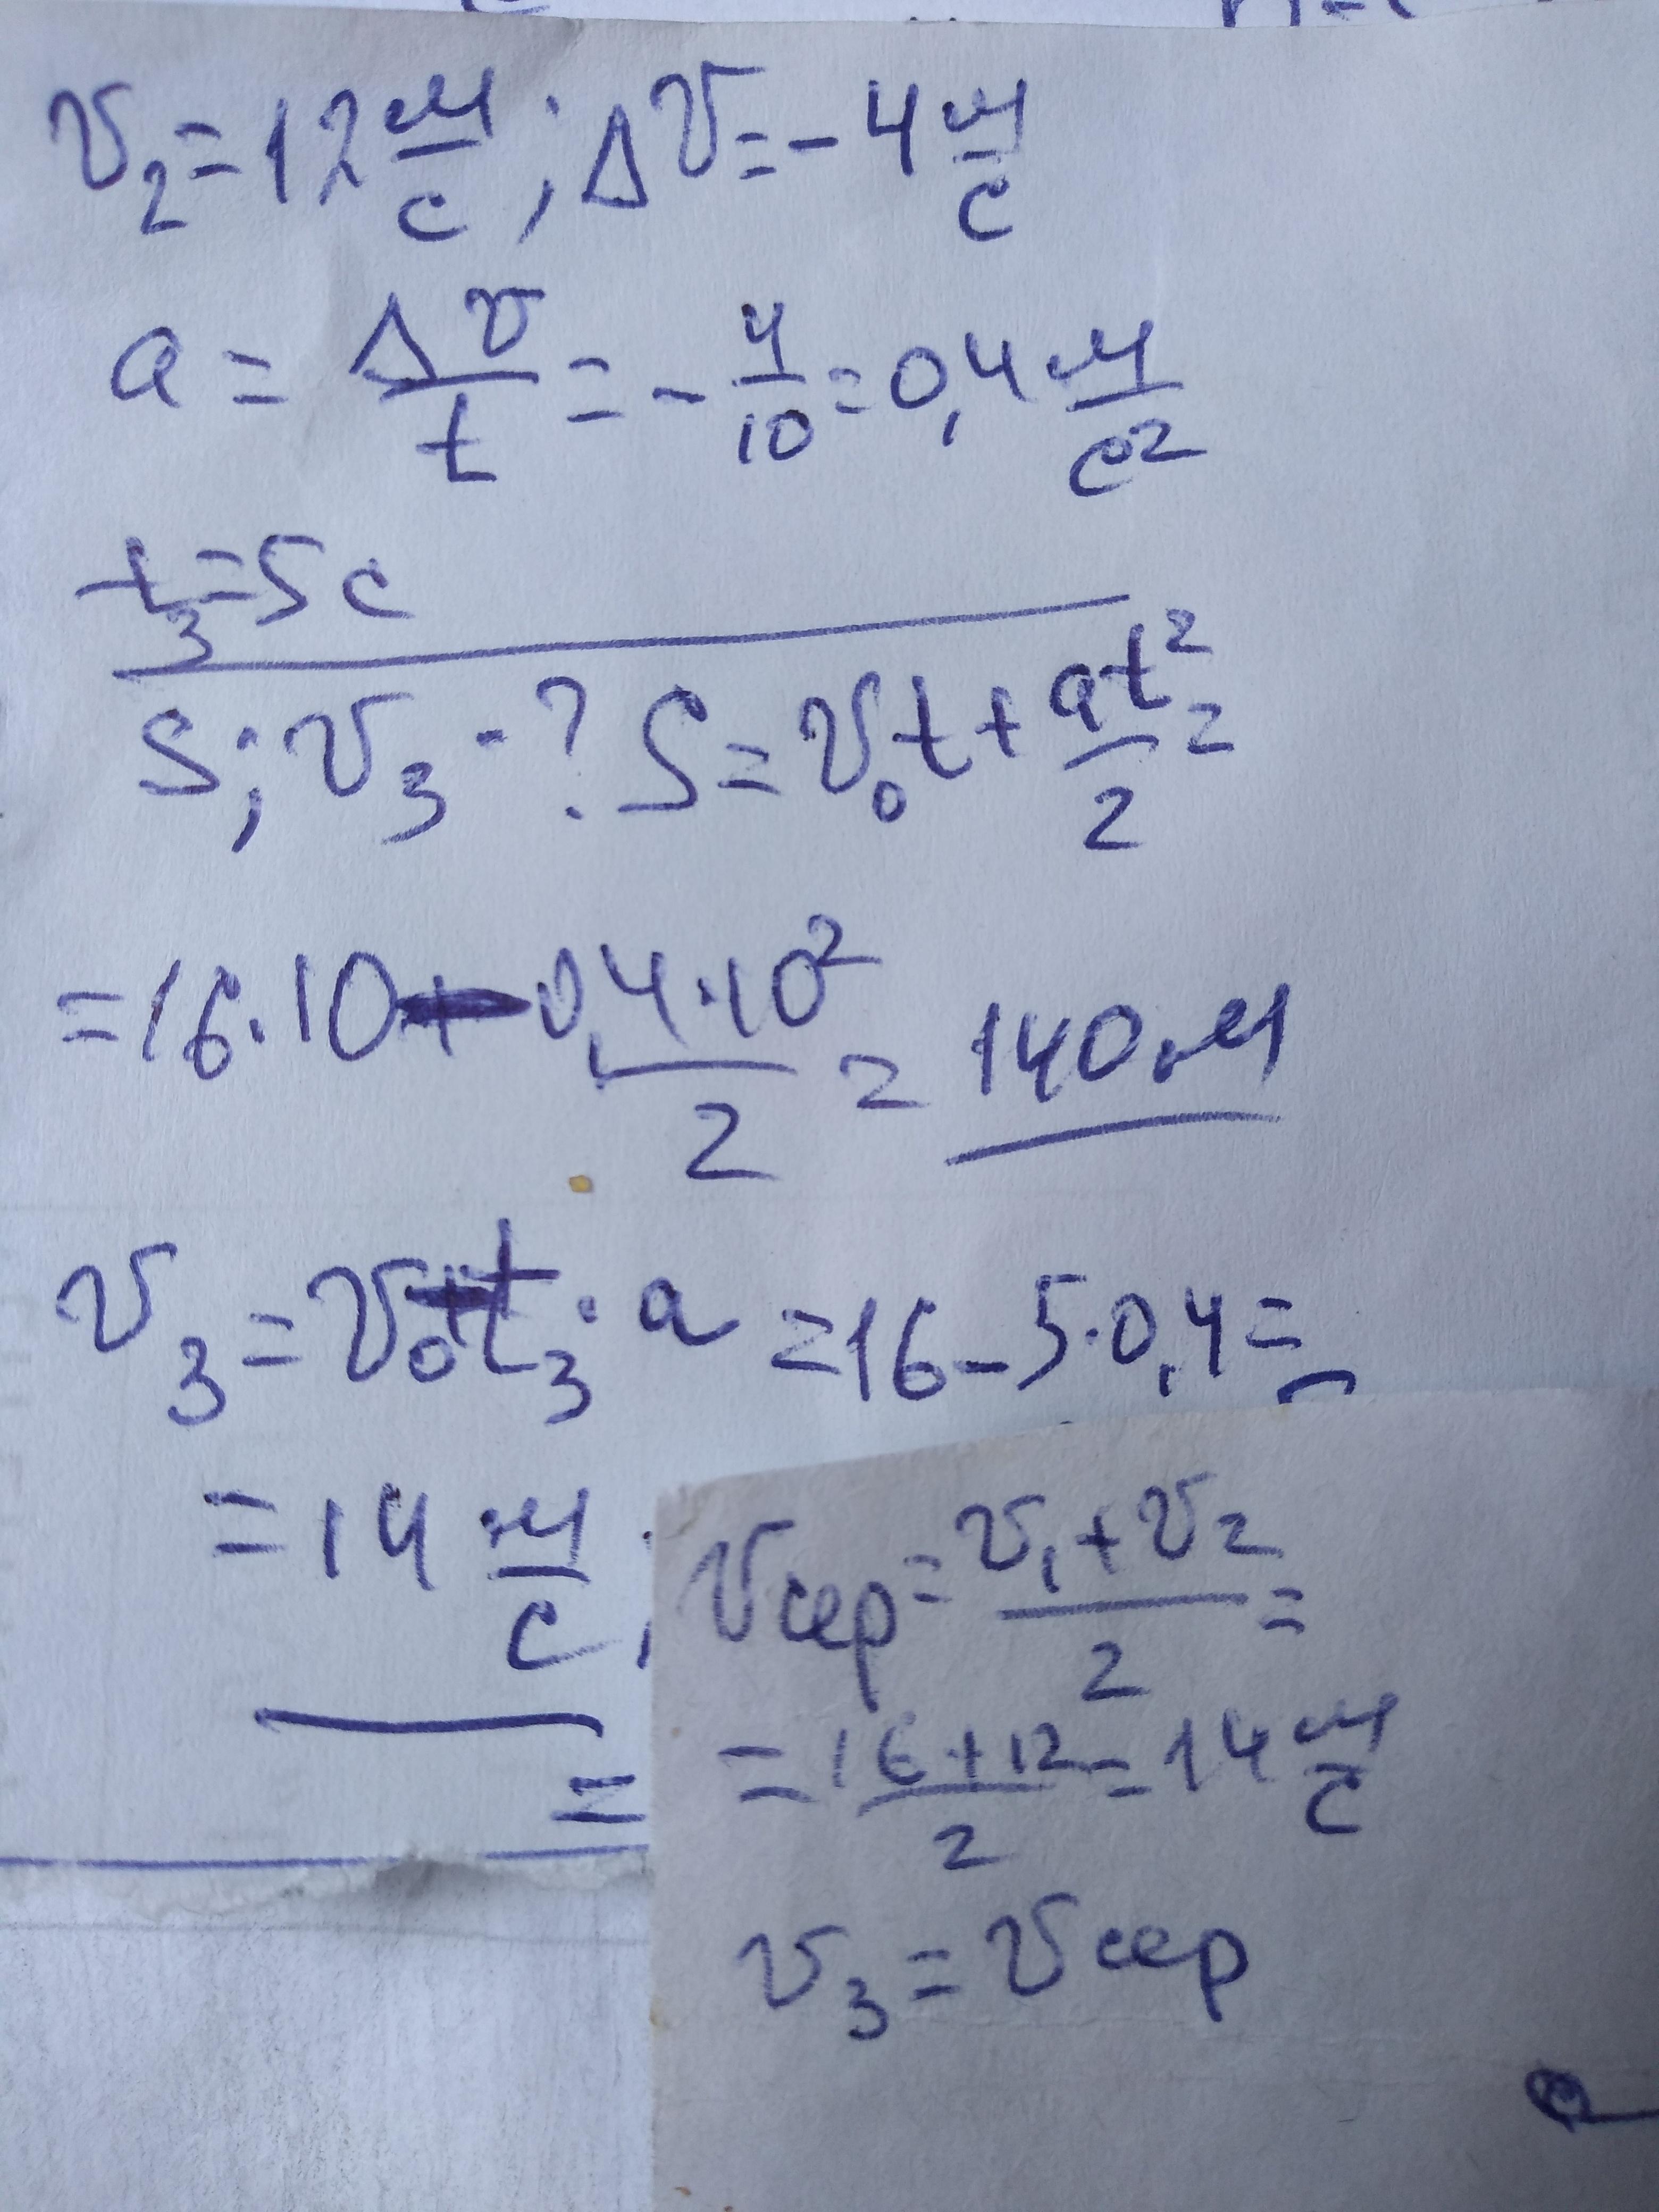 v₂ = 12 м/с ; Δv = -4 м/с
a = Δv/t = - 4/10 = 0,4 м/с²
t₃ = 5 с
S ; v₃ - ? S = v₀t + at²/2 =
= 16·10 - 0,4·10²/2 = 140 м
v₃ = v₀ + t₃ · a = 16 - 5·0,4 =
= 14 м/с ;
=
vсер = v₁ + v₂/2 =
= 16 + 12/2 = 14 м/с
v₃ = vсер